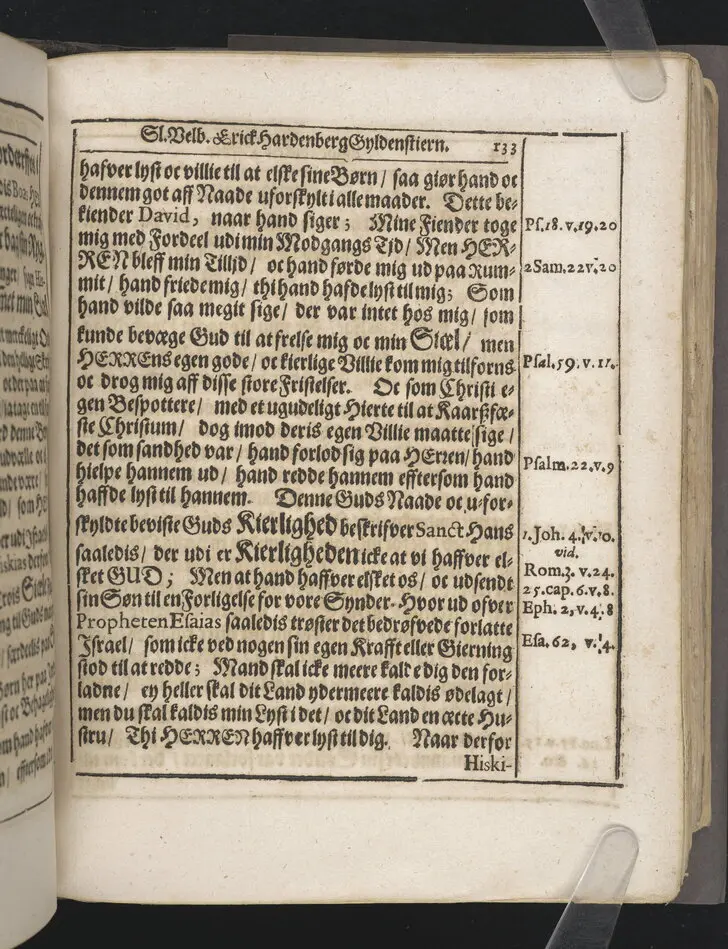 Sl. Velb. Erick Hardenberg Gyldenstiern. 133
hafver lyst oc villie til at elske sine Børn / saa giør hand oc
dennem got aff Naade uforskylt i alle maader. Dette be-
kiender David, naar hand siger; Mine Fiender toge
mig med Fordeel udi min Modgangs Tjd / Men HER-
REN bleff min Tilljd / oc hand førde mig ud paa Rum-
mit / hand friede mig / thi hand hafde lyst til mig; Som
hand vilde saa megit sige / der var intet hos mig / som
kunde bevæge Gud til at frelse mig oc min Siæl / men
HERRENs egen gode / oc kierlige Villie kom mig tilforns
oc drog mig aff disse store Fristelser. Oc som Christi e-
gen Bespottere / med et ugudeligt Hierte til at Kaarßfæ-
ste Christum / dog imod deris egen Villie maatte sige /
det som sandhed var / hand forlod sig paa HErren / hand
hielpe hannem ud / hand redde hannem efftersom hand
haffde lyst til hannem. Denne Guds Naade oc u-for-
skyldte beviste Guds Kierlighed beskrifver Sanct Hans
saaledis / der udi er Kierligheden icke at vi haffver el-
sket GUD; Men at hand haffver elsket os / oc udsendt
sin Søn til en Forligelse for vore Synder. Hvor ud ofver
Propheten Esaias saaledis trøster det bedrøfvede forlatte
Jsrael / som icke ved nogen sin egen Krafft eller Gierning
stod til at redde; Mand skal icke meere kalde dig den for-
ladne / ey heller skal dit Land ydermeere kaldis ødelagt /
men du skal kaldis min Lyst i det / oc dit Land en ætte Hu-
stru / Thi HERREN haffver lyst til dig. Naar derfor
Hiski-
Ps. 18. v. 19. 20
2 Sam. 22 v. 20
Psal. 59. v. 11.
Psalm. 22. v. 9
1. Joh. 4. v. 10.
vid.
Rom. 3. v. 24.
25. cap. 6. v. 8.
Eph. 2, v. 4. 8
Esa. 62, v. 4.